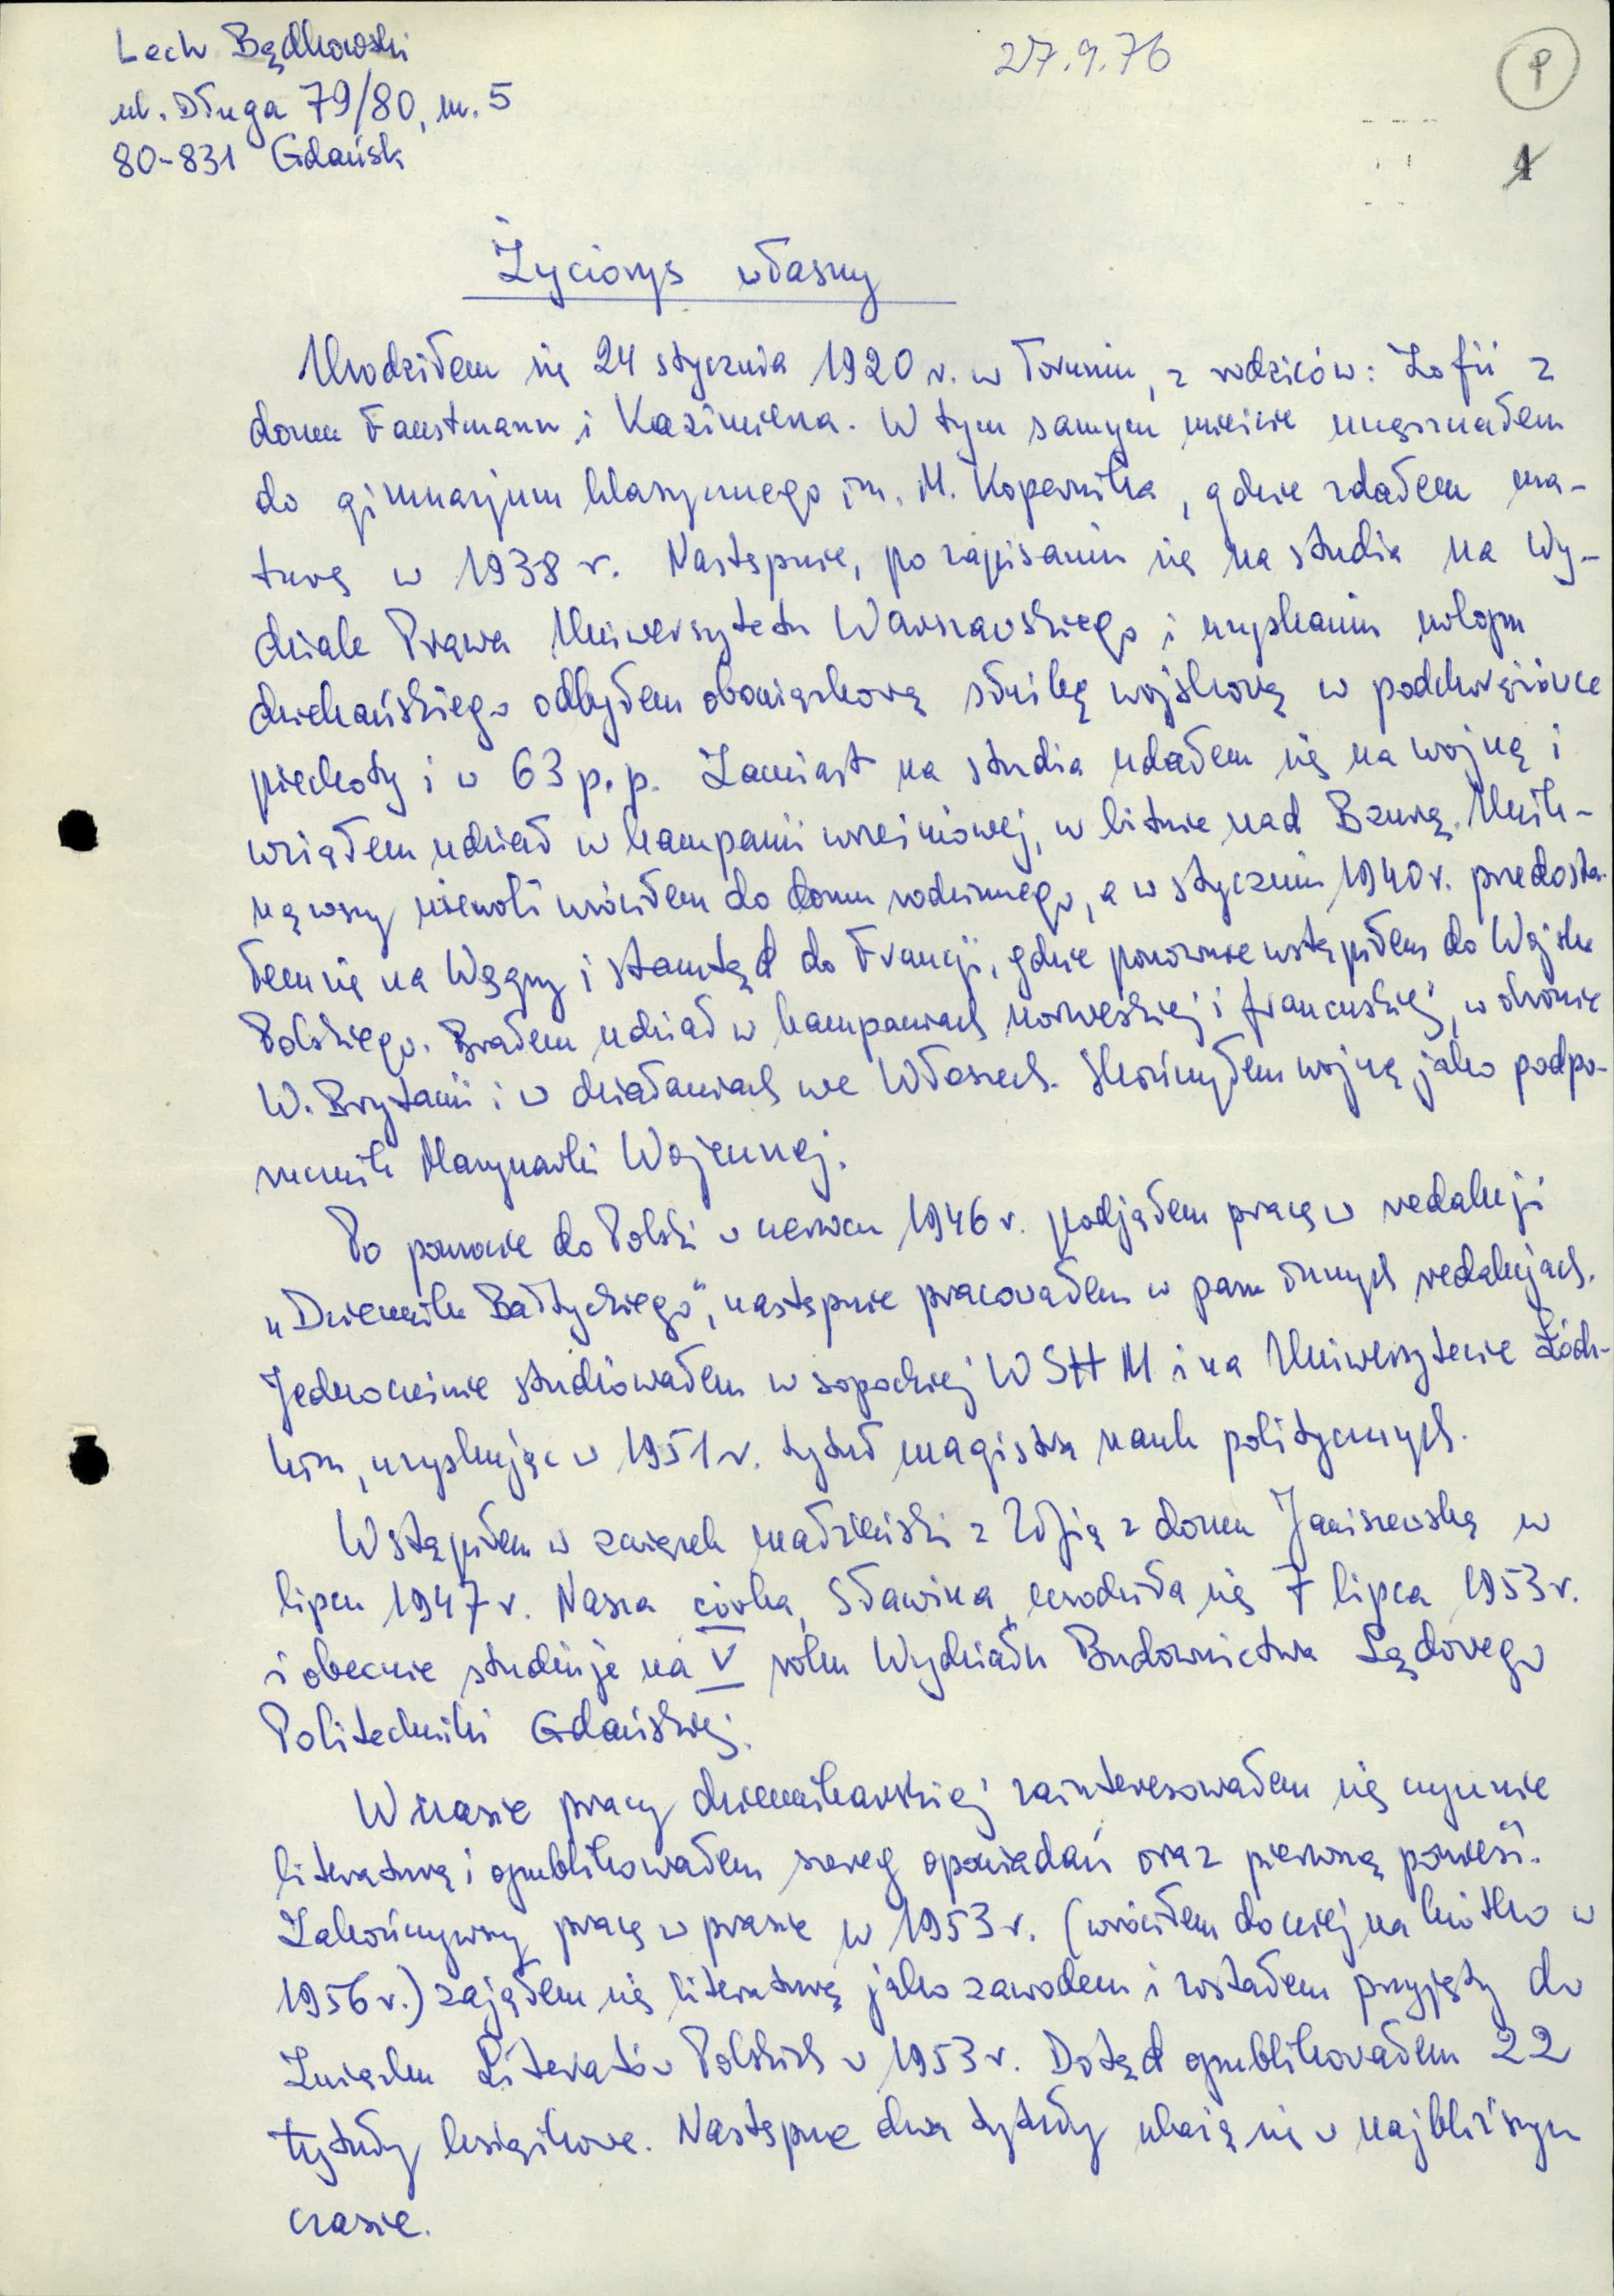 Lech Bądkowski
27.9.76
1
ul. Długa 79/80, m. 5
80-831 Gdańsk
1
Życiorys własny
Urodziłem się 24 stycznia 1920 r. w Toruniu, z rodziców: Zofii z
domu Faustmann i Kazimierza. W tym samym mieście uczęszczałem
do gimnazjum klasycznego im. M. Kopernika, gdzie zdałem ma-
turę w 1938 r. Następnie, po zapisaniu się na studia na Wy-
dziale Prawa Uniwersytetu Warszawskiego i uzyskaniu urlopu
dziekańskiego odbyłem obowiązkową służbę wojskową w podchorążówce
piechoty i w 63 p.p. Zamiast na studia udałem się na wojnę i
wziąłem udział w kampanii wrześniowej, w bitwie nad Bzurą. Unik-
nąwszy niewoli wróciłem do domu rodzinnego, a w styczniu 1940 r. przedosta-
łem się na Węgry i stamtąd do Francji, gdzie ponownie wstąpiłem do Wojska
Polskiego. Brałem udział w kampaniach norweskiej i francuskiej, w obronie
W. Brytanii i w działaniach we Włoszech. Skończyłem wojnę jako podpo-
rucznik Marynarki Wojennej.
Po powrocie do Polski w czerwcu 1946 r. podjąłem pracę w redakcji
„Dziennika Bałtyckiego", następnie pracowałem w paru innych redakcjach.
Jednocześnie studiowałem w sopockiej WSHM i na Uniwersytecie Łódz-
kim, uzyskując w 1951 r. tytuł magistra nauk politycznych.
Wstąpiłem w związek małżeński z Zofią z domu Janiszewską w
lipcu 1947 r. Nasza córka, Sławina, urodziła się 7 lipca 1953 r.
i obecnie studiuje na V roku Wydziału Budownictwa Lądowego
Politechniki Gdańskiej.
W czasie pracy dziennikarskiej zainteresowałem się czynnie
literaturą i opublikowałem szereg opowiadań oraz pierwszą powieść.
Zakończywszy pracę w prasie w 1953 r. (wróciłem do niej na krótko w
1956 r.) zająłem się literaturą jako zawodem i zostałem przyjęty do
Związku Literatów Polskich w 1953 r. Dotąd opublikowałem 22
tytuły książkowe. Następne dwa tytuły ukażą się w najbliższym
czasie.